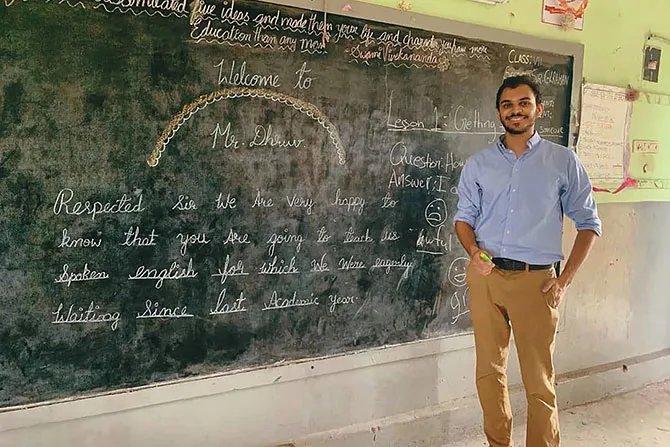 assimilated five ideas and made them your life and character you have more
Education than any man
Swami Vivekananda
Welcome to
Mr. Dhruv
Respected Sir We Are Very happy to
know that you Are going to teach us
Spoken english for which We Were eagerly
Waiting Since last Academic year
CLASS: VII
Lesson 1: Getting
Question: How
Answer: I a